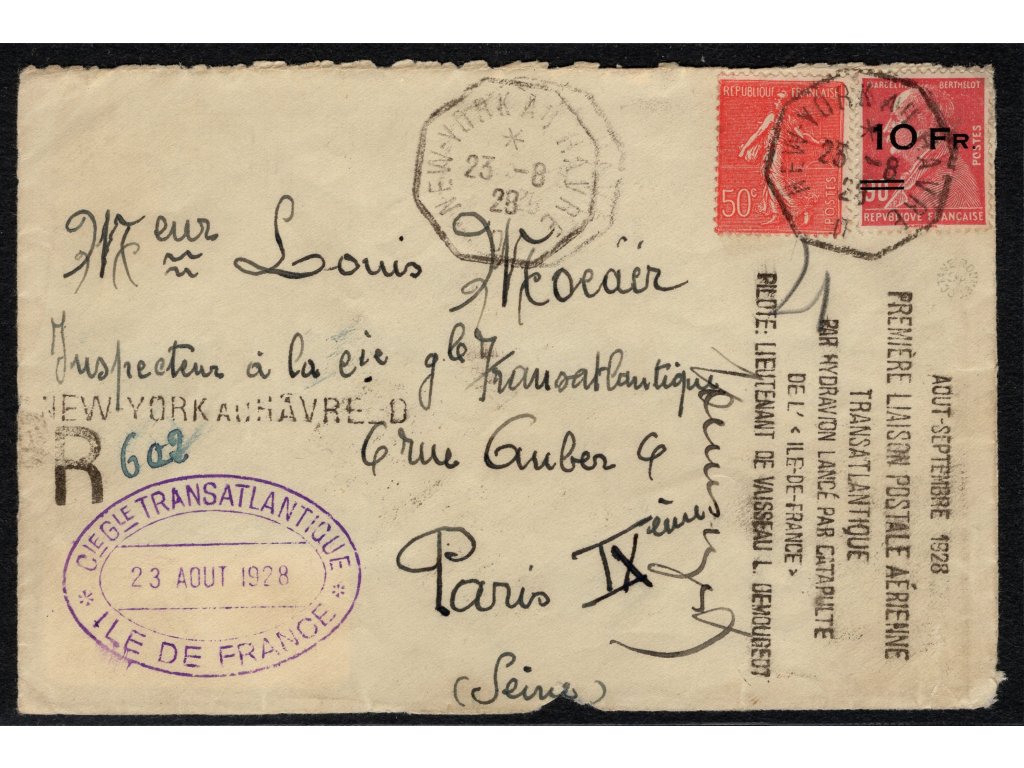 NEW-YORK AU HAVRE
*
23 -8
28
REPUBLIQUE FRANÇAISE
50c
POSTES
MARCELIN BERTHELOT
10 FR
90c
POSTES
REPVBLIQUE FRANÇAISE
NEW-YORK AU HAVRE
23 -8
28
Meur Louis
Inspecteur à la Cie gle Transatlantique
NEW-YORK AU HÂVRE_D
R 602
6 rue Auber 6
Paris IXième
(Seine)
CIE GLE TRANSATLANTIQUE
23 AOUT 1928
* ILE DE FRANCE *
AOUT-SEPTEMBRE 1928
PREMIÈRE LIAISON POSTALE AÉRIENNE
TRANSATLANTIQUE
PAR HYDRAVION LANCÉ PAR CATAPULTE
DE L' « ILE-DE-FRANCE »
PILOTE: LIEUTENANT DE VAISSEAU L. DEMOUGEOT